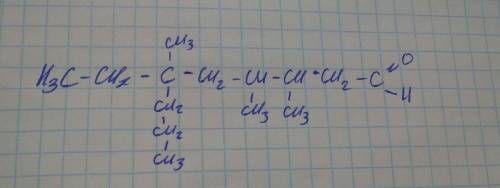 CH₃
H₃C - CH₂ - C - CH₂ - CH - CH - CH₂ - C = O
CH₂ CH₃ CH₃ - H
CH₂
CH₃